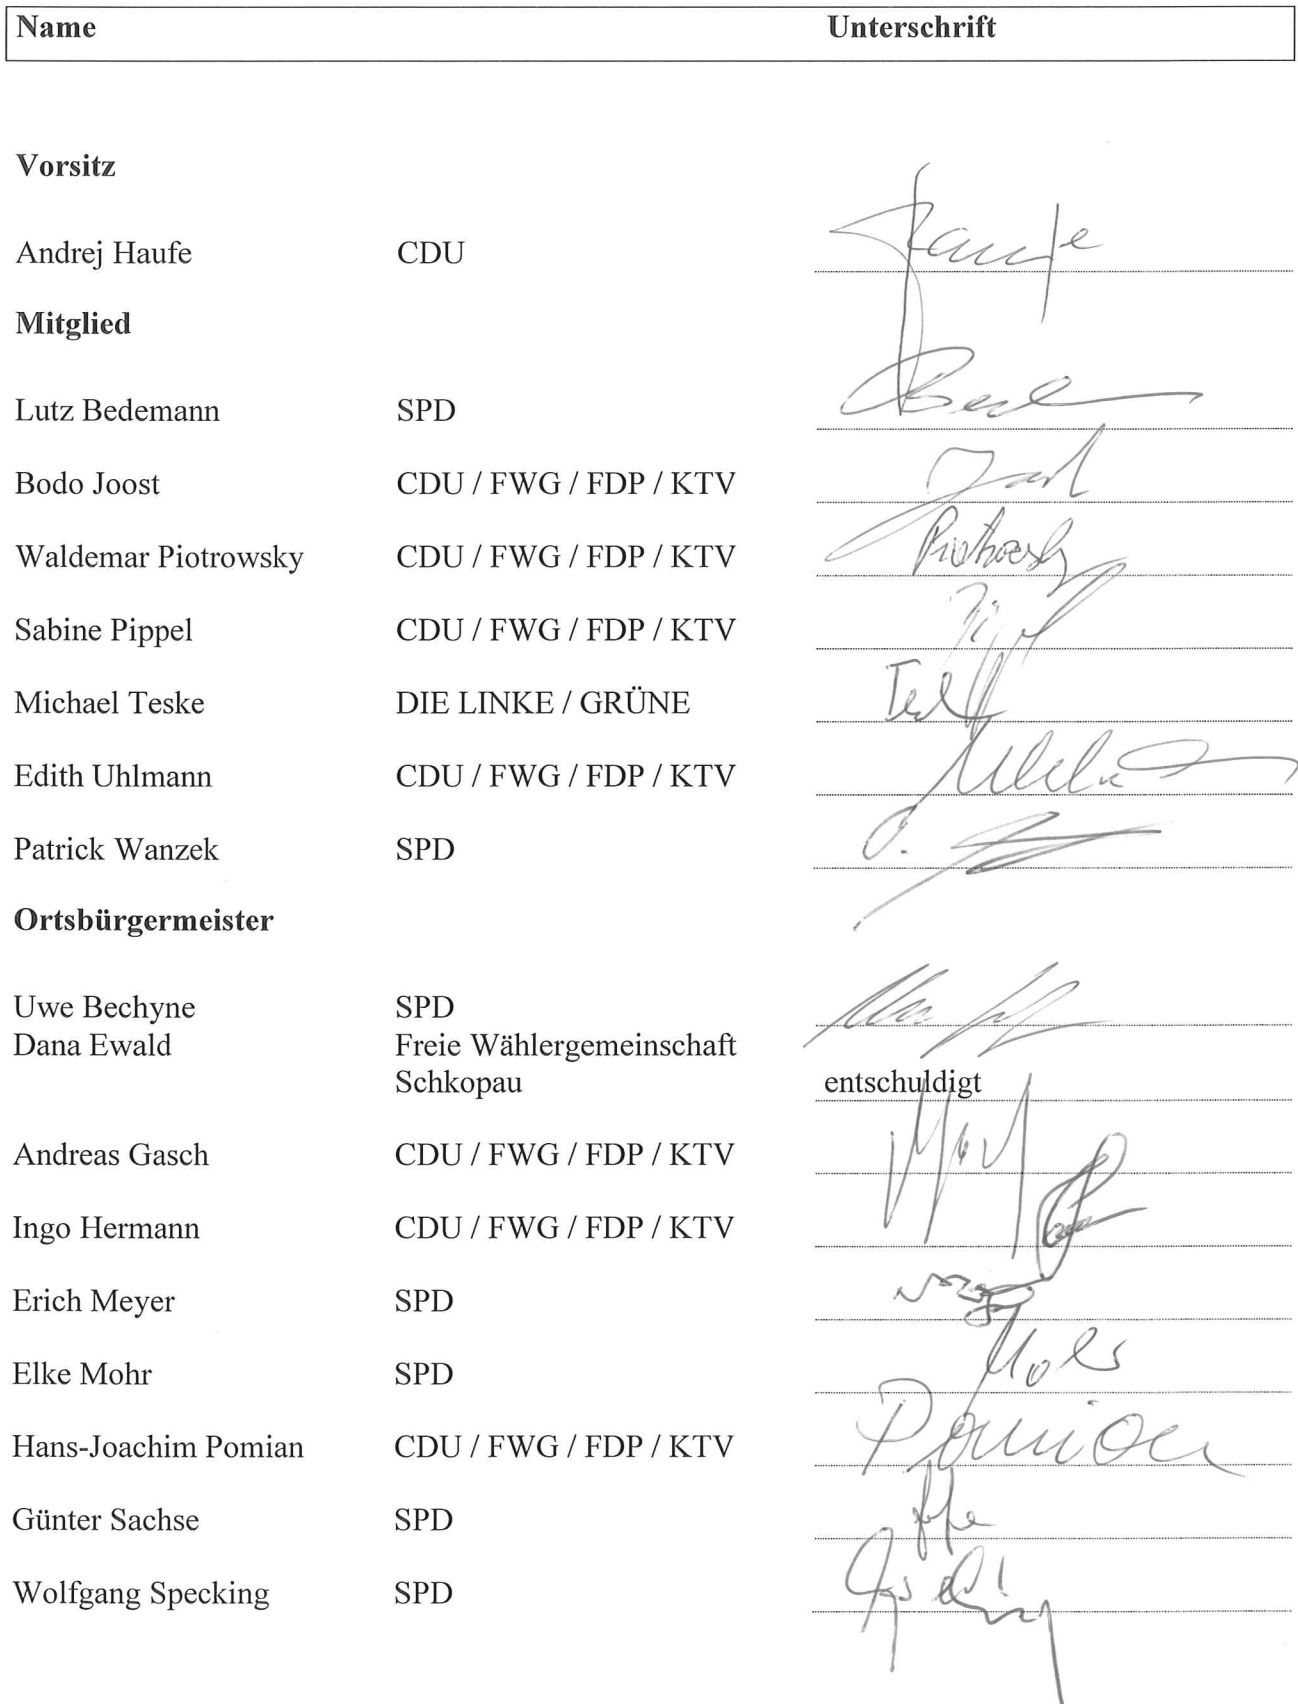 Name Unterschrift
Vorsitz
Andrej Haufe CDU Haufe
Mitglied
Lutz Bedemann SPD
Bodo Joost CDU / FWG / FDP / KTV
Waldemar Piotrowsky CDU / FWG / FDP / KTV
Sabine Pippel CDU / FWG / FDP / KTV
Michael Teske DIE LINKE / GRÜNE
Edith Uhlmann CDU / FWG / FDP / KTV
Patrick Wanzek SPD
Ortsbürgermeister
Uwe Bechyne SPD
Dana Ewald Freie Wählergemeinschaft
Schkopau entschuldigt
Andreas Gasch CDU / FWG / FDP / KTV
Ingo Hermann CDU / FWG / FDP / KTV
Erich Meyer SPD
Elke Mohr SPD
Hans-Joachim Pomian CDU / FWG / FDP / KTV Pomian
Günter Sachse SPD
Wolfgang Specking SPD